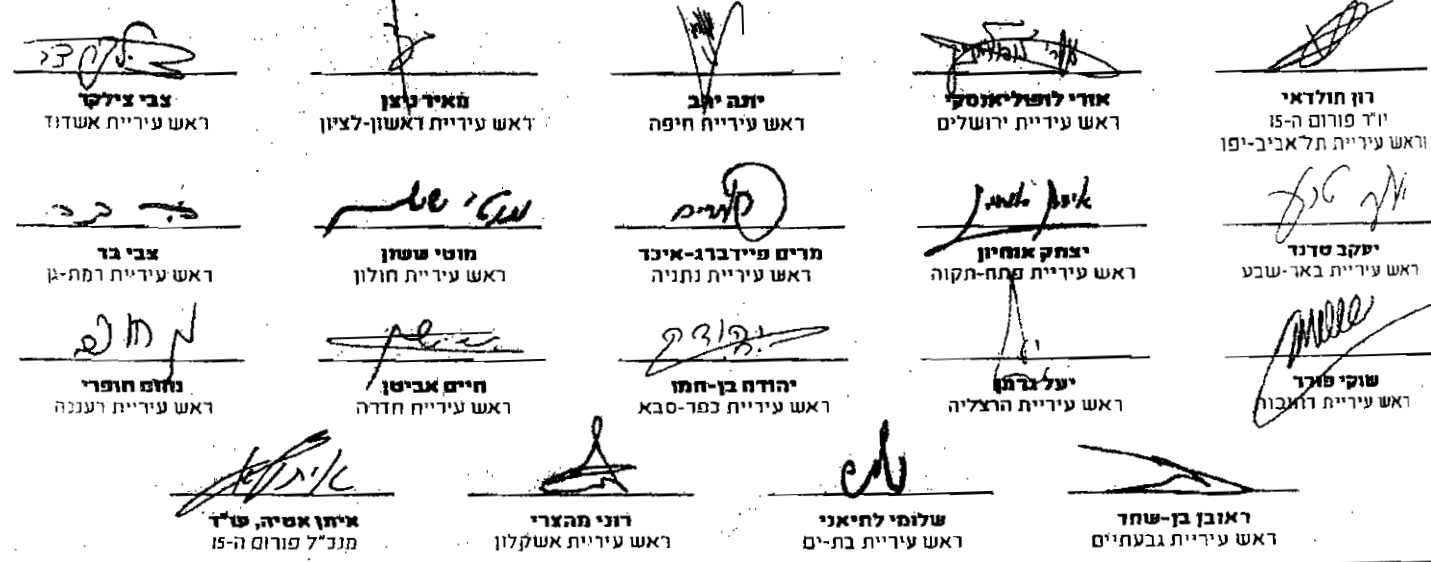 רון חולדאי
יו"ר פורום ה-15
וראש עיריית תל אביב-יפו
אורי לופוליאנסקי
ראש עיריית ירושלים
יונה יהב
ראש עיריית חיפה
מאיר ניצן
ראש עיריית ראשון-לציון
צבי צילקר
ראש עיריית אשדוד
יעקב טרנר
ראש עיריית באר-שבע
יצחק אוחיון
ראש עיריית פתח-תקוה
מרים פיירברג-איכר
ראש עיריית נתניה
מוטי ששון
ראש עיריית חולון
צבי בר
ראש עיריית רמת-גן
שוקי פורר
ראש עיריית רחובות
יעל גרמן
ראש עיריית הרצליה
יהודה בן-חמו
ראש עיריית כפר-סבא
חיים אביטן
ראש עיריית חדרה
נחום חופרי
ראש עיריית רעננה
ראובן בן-שחר
ראש עיריית גבעתיים
שלומי לחיאני
ראש עיריית בת-ים
רוני מהצרי
ראש עיריית אשקלון
איתן אטיה, עו"ד
מנכ"ל פורום ה-15